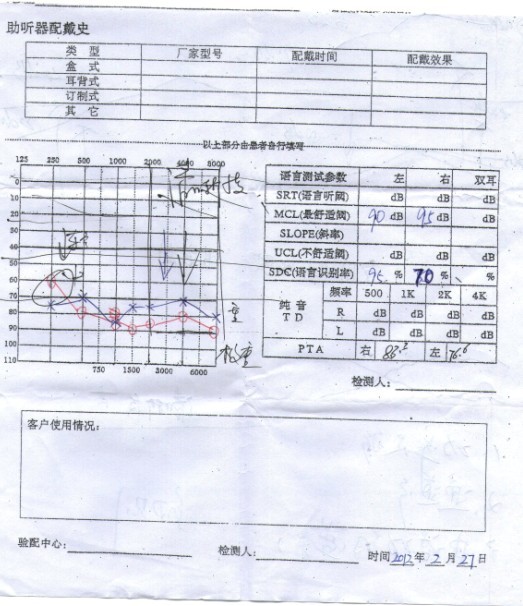 助听器配戴史
类 型 厂家型号 配戴时间 配戴效果
盒 式
耳背式
订制式
其 它
以上部分由患者自行填写
125 250 500 1000 2000 4000 8000
0
10
20
30
40
50
60
70
80
90
100
110
750 1500 3000 6000
重
极重
语言测试参数 左 右 双耳
SRT(语言听阈) dB dB dB
MCL(最舒适阈) 90 dB 95 dB dB
SLOPE(斜率)
UCL(不舒适阈) dB dB dB
SDC(语言识别率) 95 % 70 % %
纯音 TD 频率 500 1K 2K 4K
R dB dB dB dB
L dB dB dB dB
PTA 右 左 76.6
检测人:
客户使用情况:
验配中心: 检测人: 时间2012年2月27日